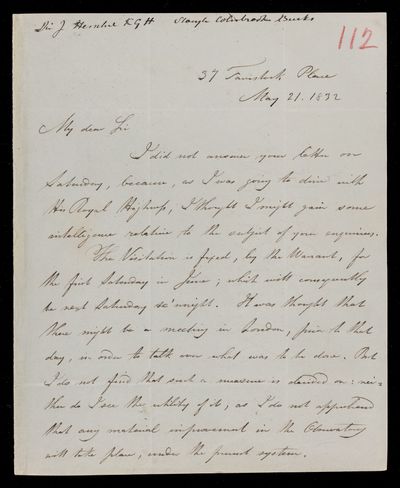 Sir J Herschel K G H Slough Colnbrook Bucks
112
37 Tavistock Place
May 21. 1832
My dear Sir
I did not answer your letter on
Saturday, because, as I was going to dine with
His Royal Highness, I thought I might gain some
intelligence relative to the subject of your enquiries.
The Visitation is fixed, by the Warrant, for
the first Saturday in June; which will consequently
be next Saturday se'nnight. It was thought that
there might be a meeting in London, prior to that
day, in order to talk over what was to be done. But
I do not find that such a measure is decided on: nei=
ther do I see the utility of it; as I do not apprehend
that any material improvement in the Observatory
will take place, under the present system.